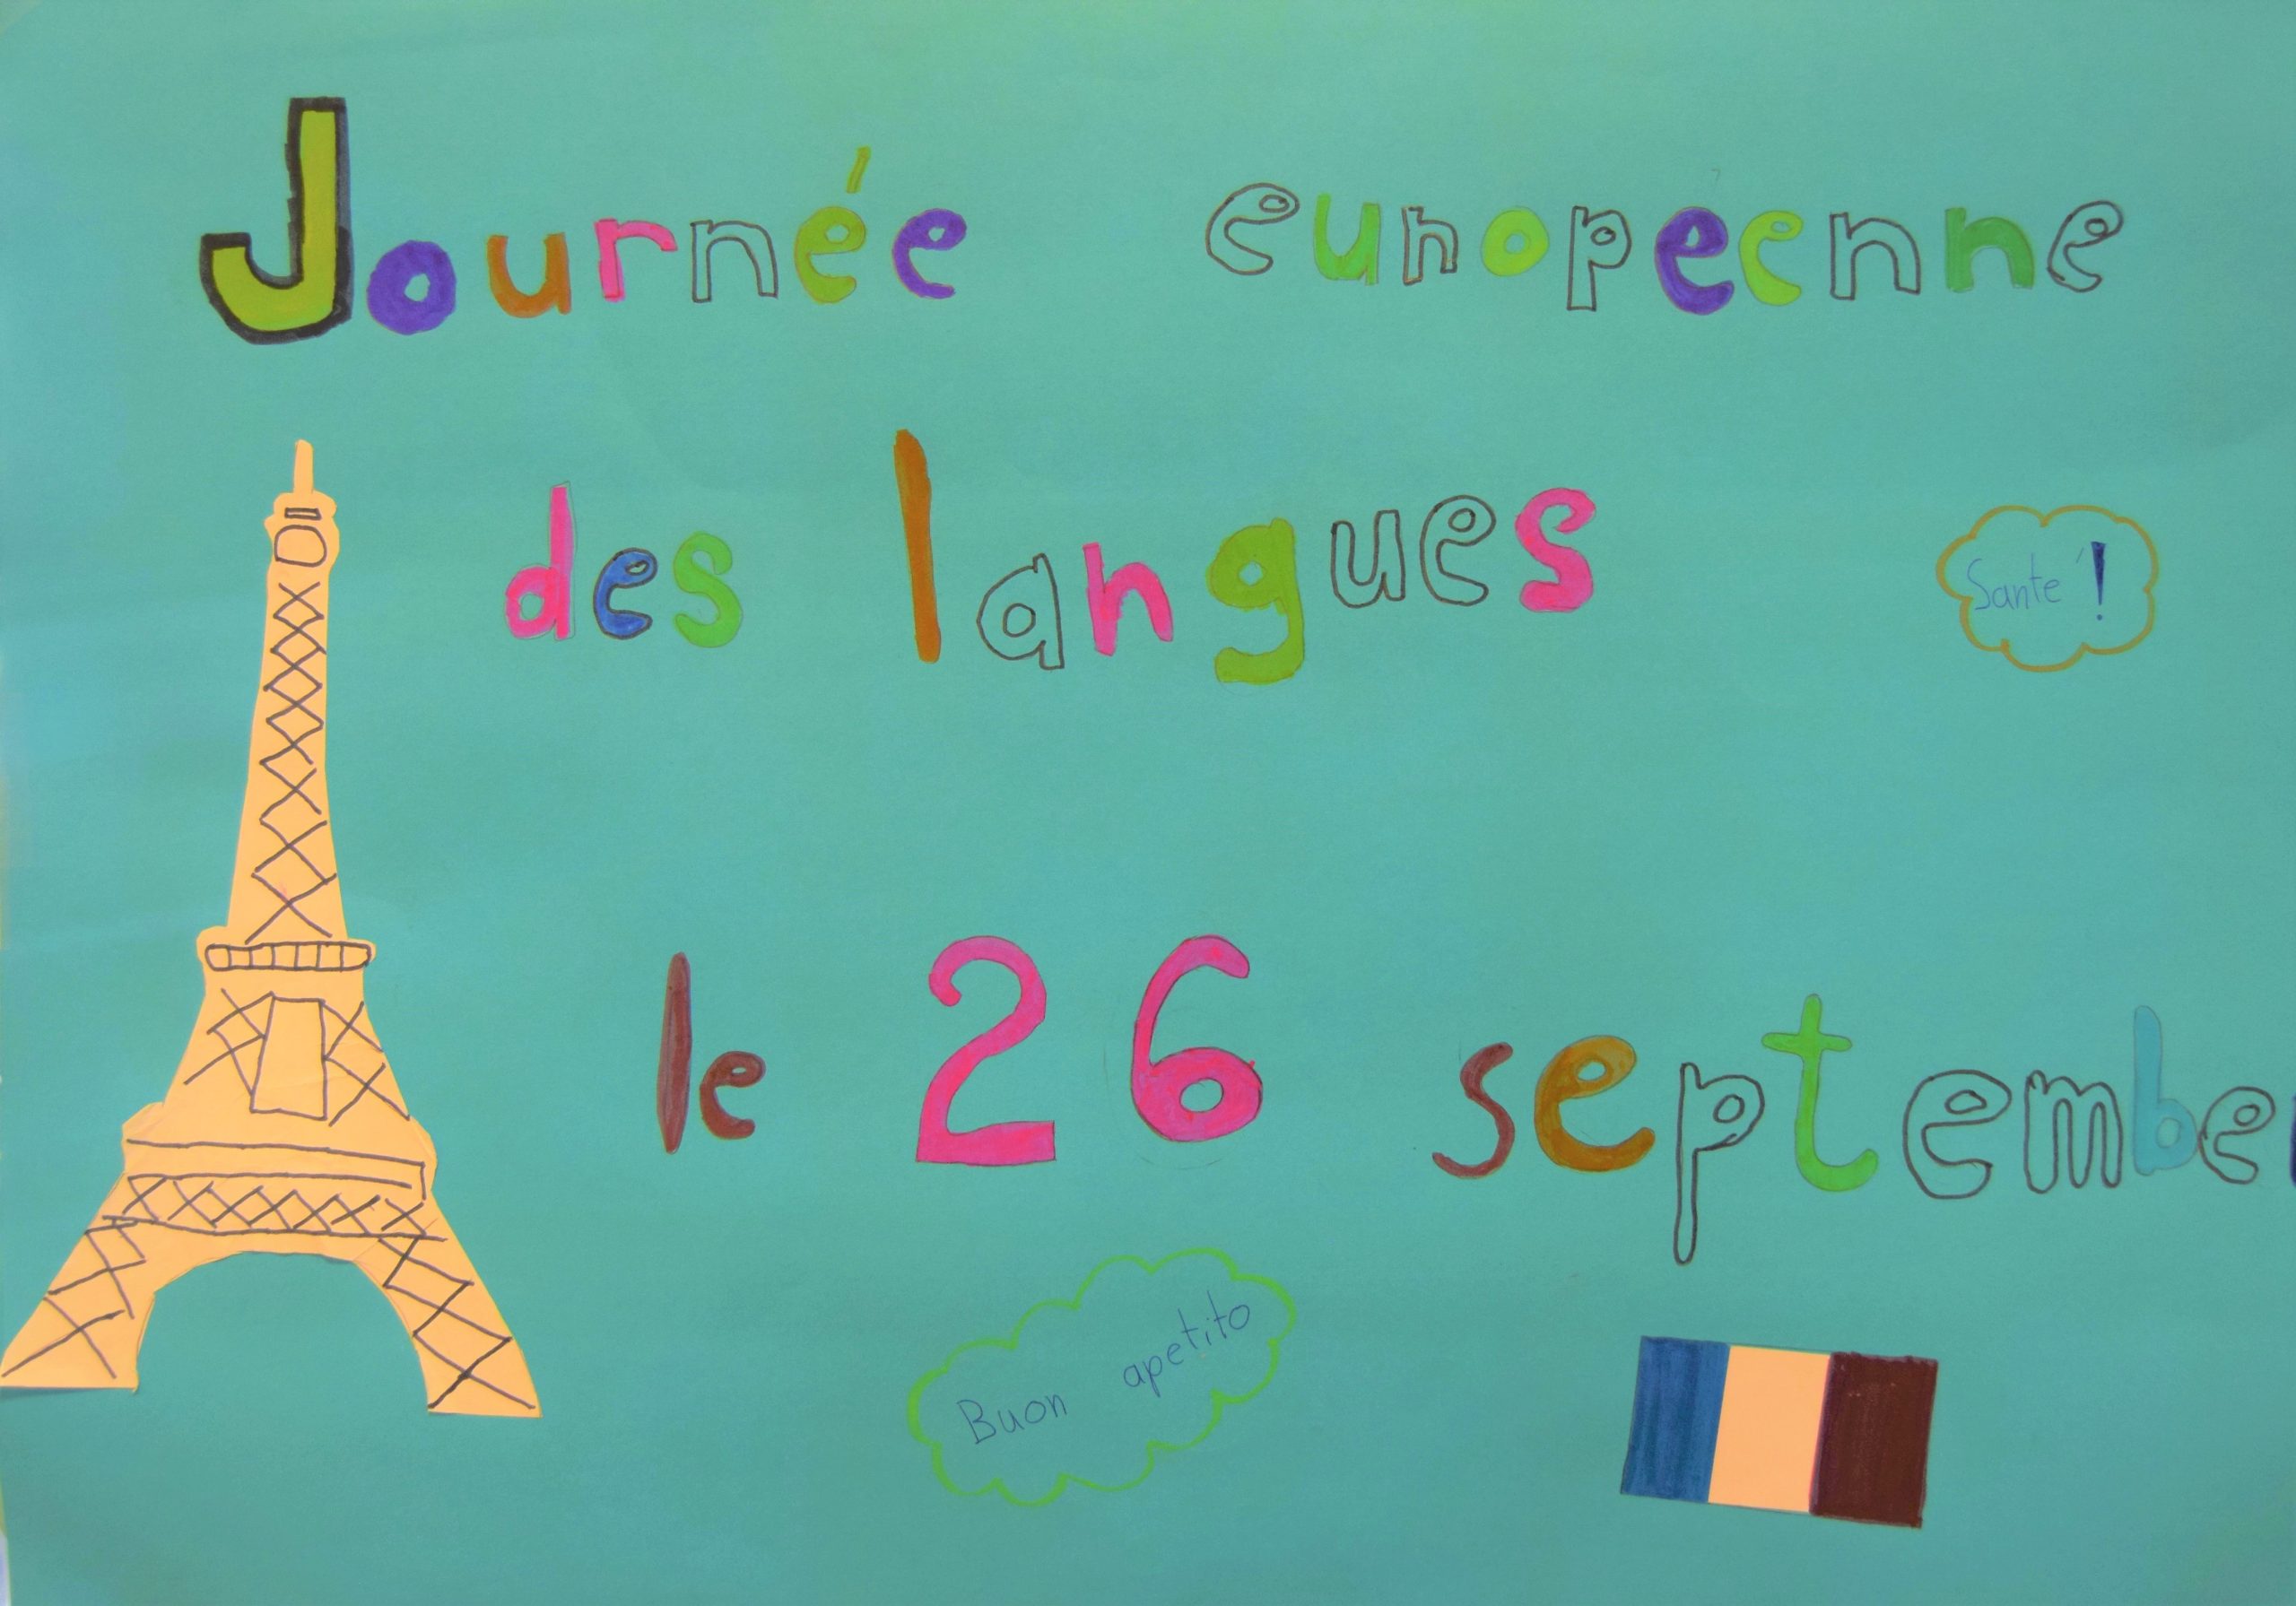 Journée europeenne
des langues
Santé!
le 26 septembe
Buon apetito